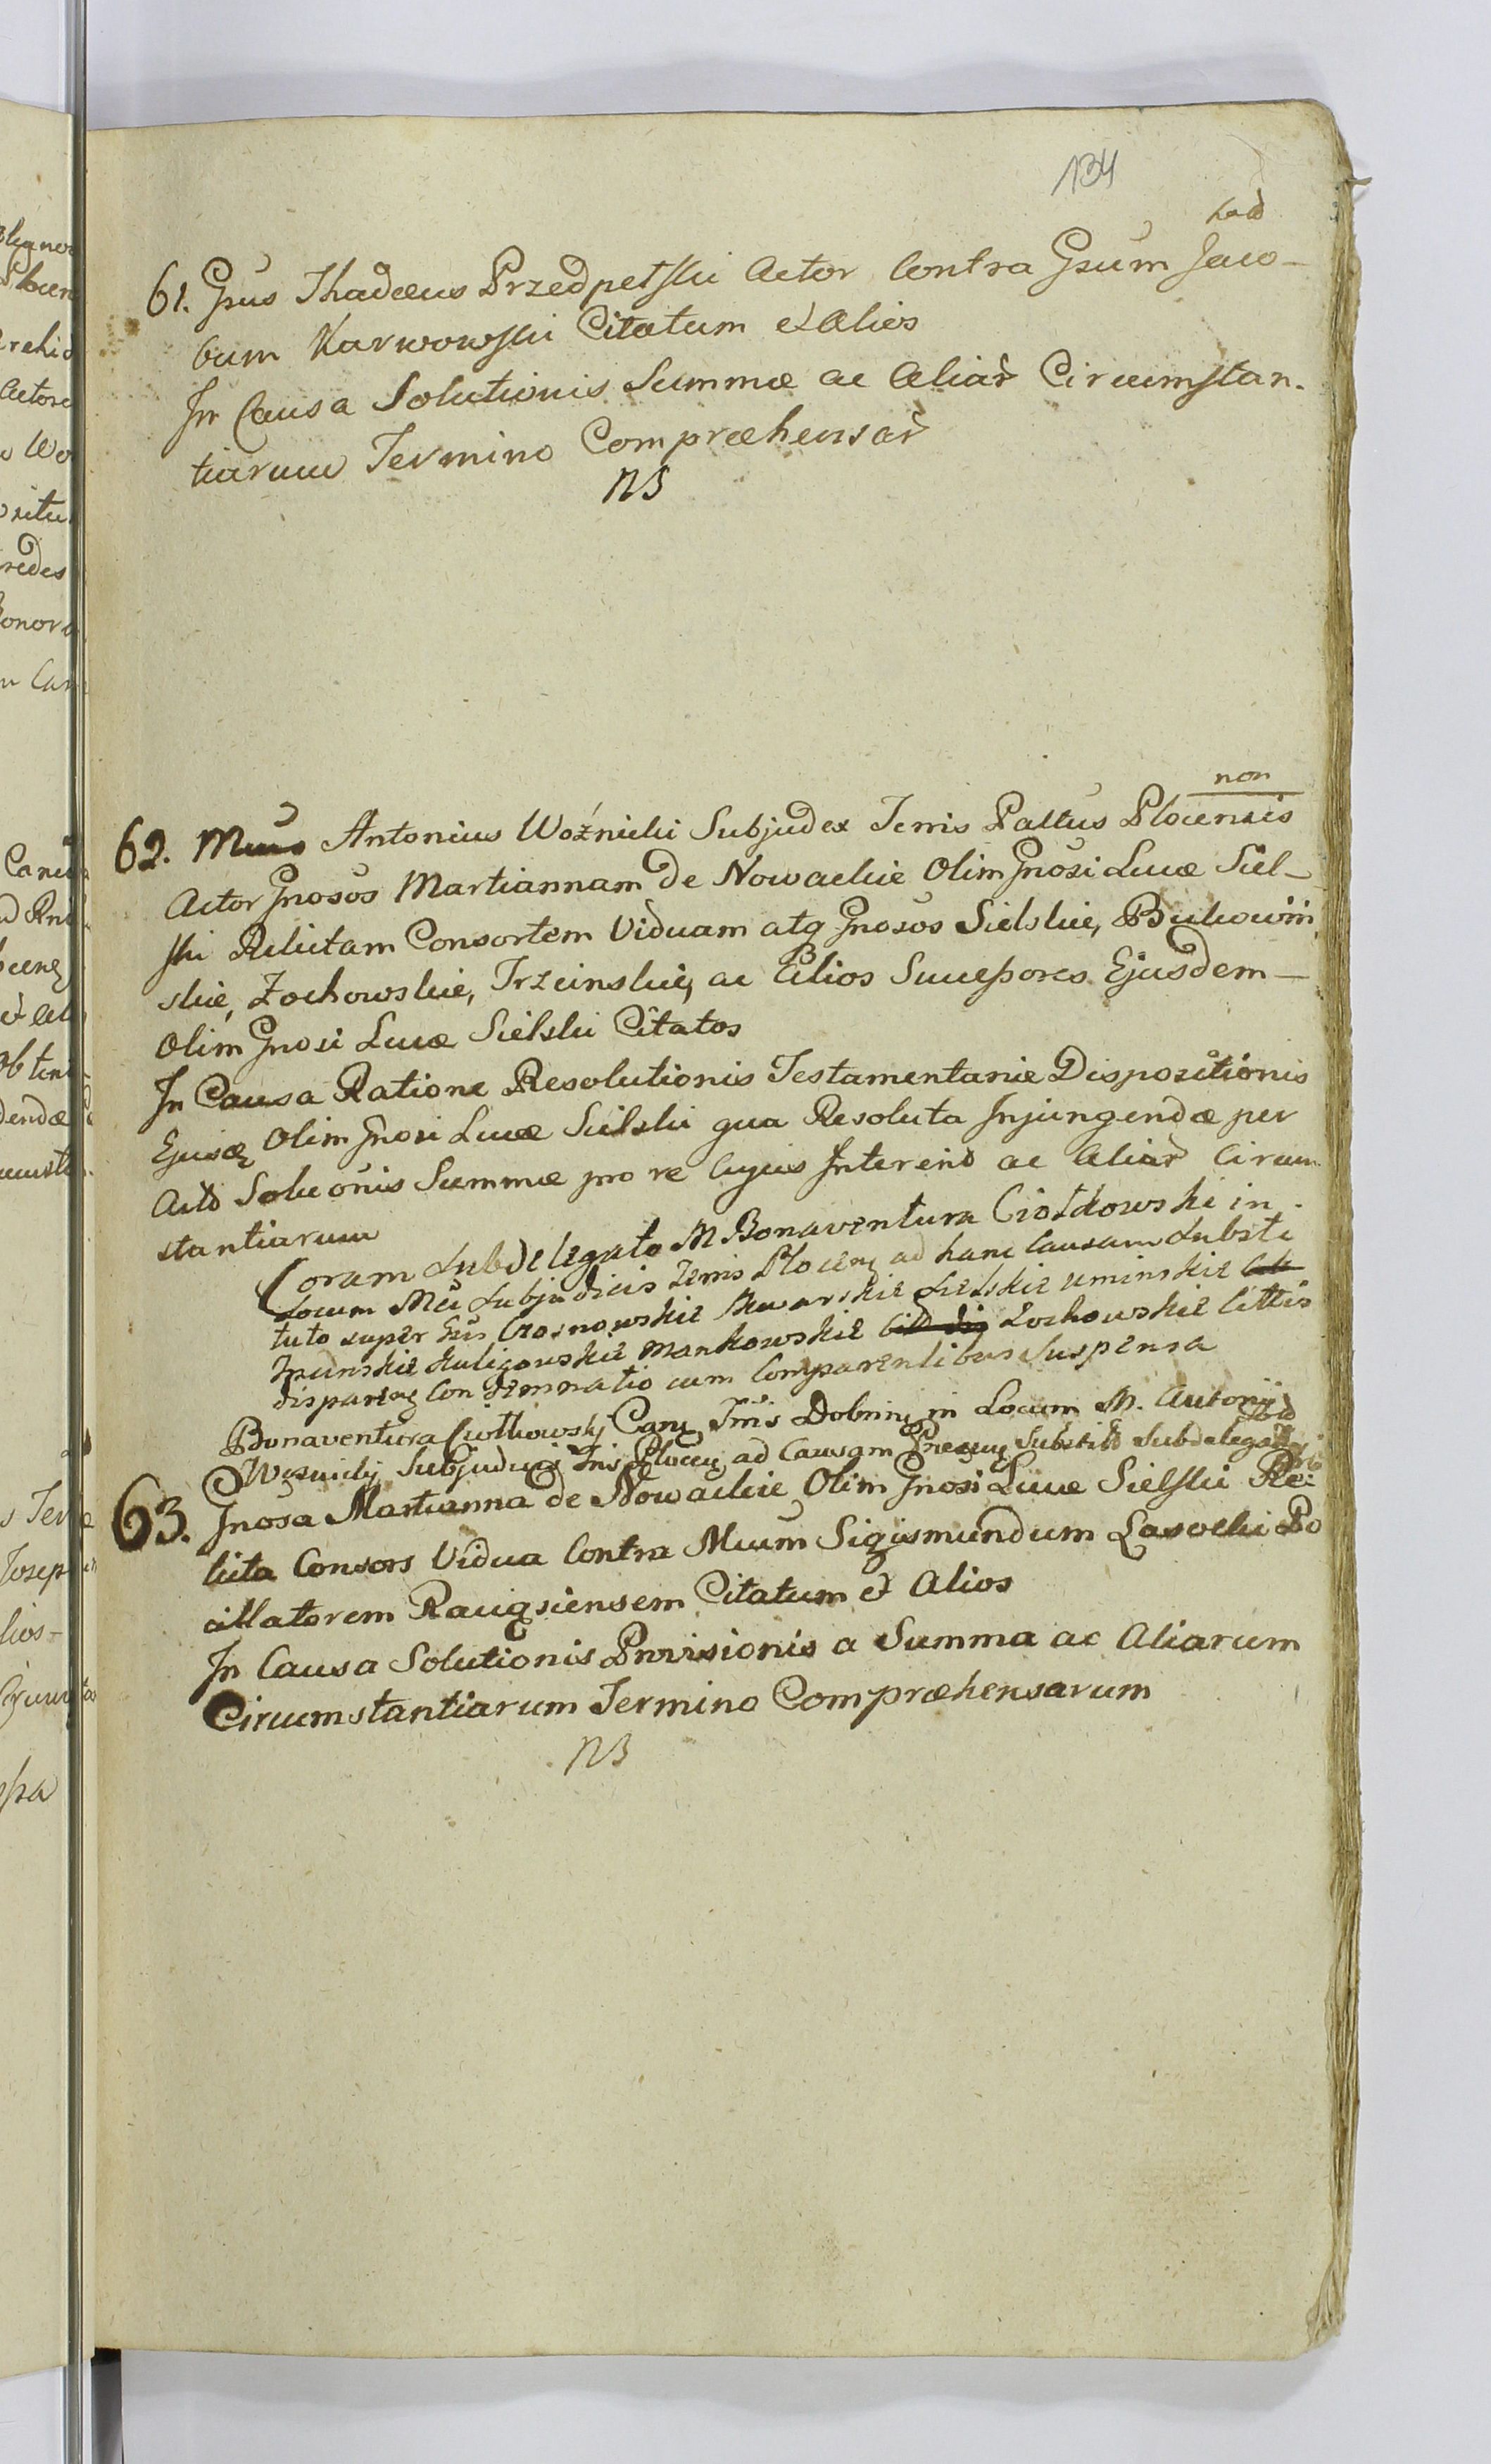 134
had
61. Gsus Thadæus Przedpetski Actor Contra Gsum Jaco-
bum Karwowski Citatum et Alios
In Causa Solutionis Summæ ac Aliar Circumstan-
tiarum Termino Compræhensar
NS
non
62. Mcus Antonius Woźnicki Subjudex Terris Pallus Plocensis
Actor Gnosos Martiannam de Nowackie Olim Gnosi Lucæ Siel-
ski Relictam Consortem Viduam atq Gnosos Sielskie, Bukowiń
skie, Żochowskie, Trzcinskie, ac Alios Successores Ejusdem-
Olim Gnosi Lucæ Sielski Citatos
In Causa Ratione Resolutionis Testamentariæ Dispositionis
Ejusq Olim Gnosi Lucæ Sielski qua Resoluta Injungendæ per
Actd Solucōnis Summæ pro re Cujus Interend ac Aliar Circum
stantiarum
Coram Subdelegato M Bonaventura Ciołkowski in
Locum Mci Subjudicis Terris Plocenz ad hanc Causam Substi
tuto super Gsis Crosnowskie Skwarskie Sielskie uminskie
Trzcinskie Kuligowskie Mankowskie Zochowskie Cittis
disparenz Condemnatio cum Comparentibus Suspensa
Bonaventura Ciołkowskj Canz Tris Dobrinz in Locum M. Antonij
Woznickj Subjudicis Tris Plocen ad Causam Præsenz Substitt Subdelegatt
63. Gnosa Martianna de Nowackie Olim Gnosi Lucæ Sielski Re-
licta Consors Vidua Contra Mcum Sigismundum Lasocki Po
cillatorem Raciqsiensem Citatum et Alios
In Causa Solutionis Provisionis a Summa ac Aliarum
Circumstantiarum Termino Compræhensarum
NS